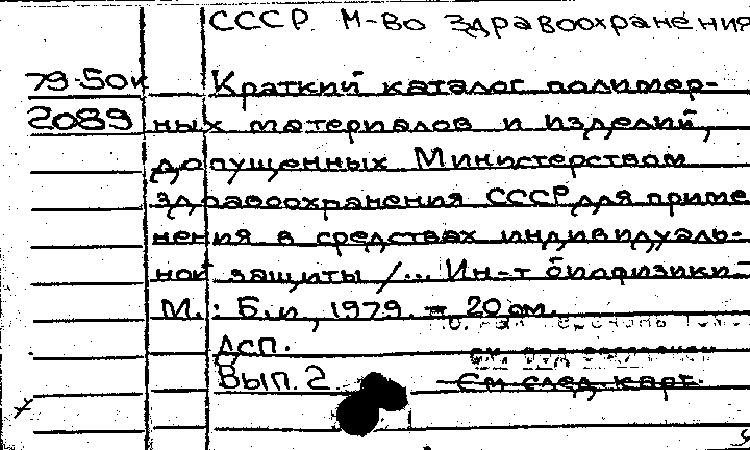 СССР. М-во Здравоохранения
79-50к Краткий каталог полимер-
2089 ных материалов и изделий,
допущенных Министерством
здравоохранения СССР для приме
нения в средствах индивидуаль-
ной защиты /... Ин-т биофизики.-
М.: Б.и, 1979. - 20 см.
Дсп.
Вып. 2. См след. карт.